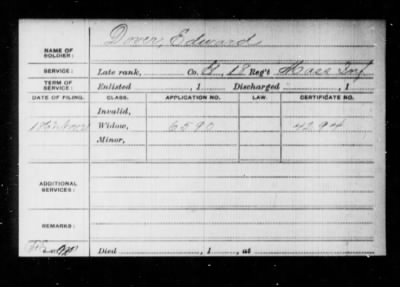 Dover, Edward
NAME OF
SOLDIER:
SERVICE: Late rank, Co. G, 18 Reg't Mass Inf.
TERM OF
SERVICE: Enlisted , 1 Discharged , 1
DATE OF FILING. CLASS. APPLICATION NO. LAW. CERTIFICATE NO.
Invalid,
Widow, 6590 4294
Minor,
ADDITIONAL
SERVICES:
REMARKS:
Died , 1 , at